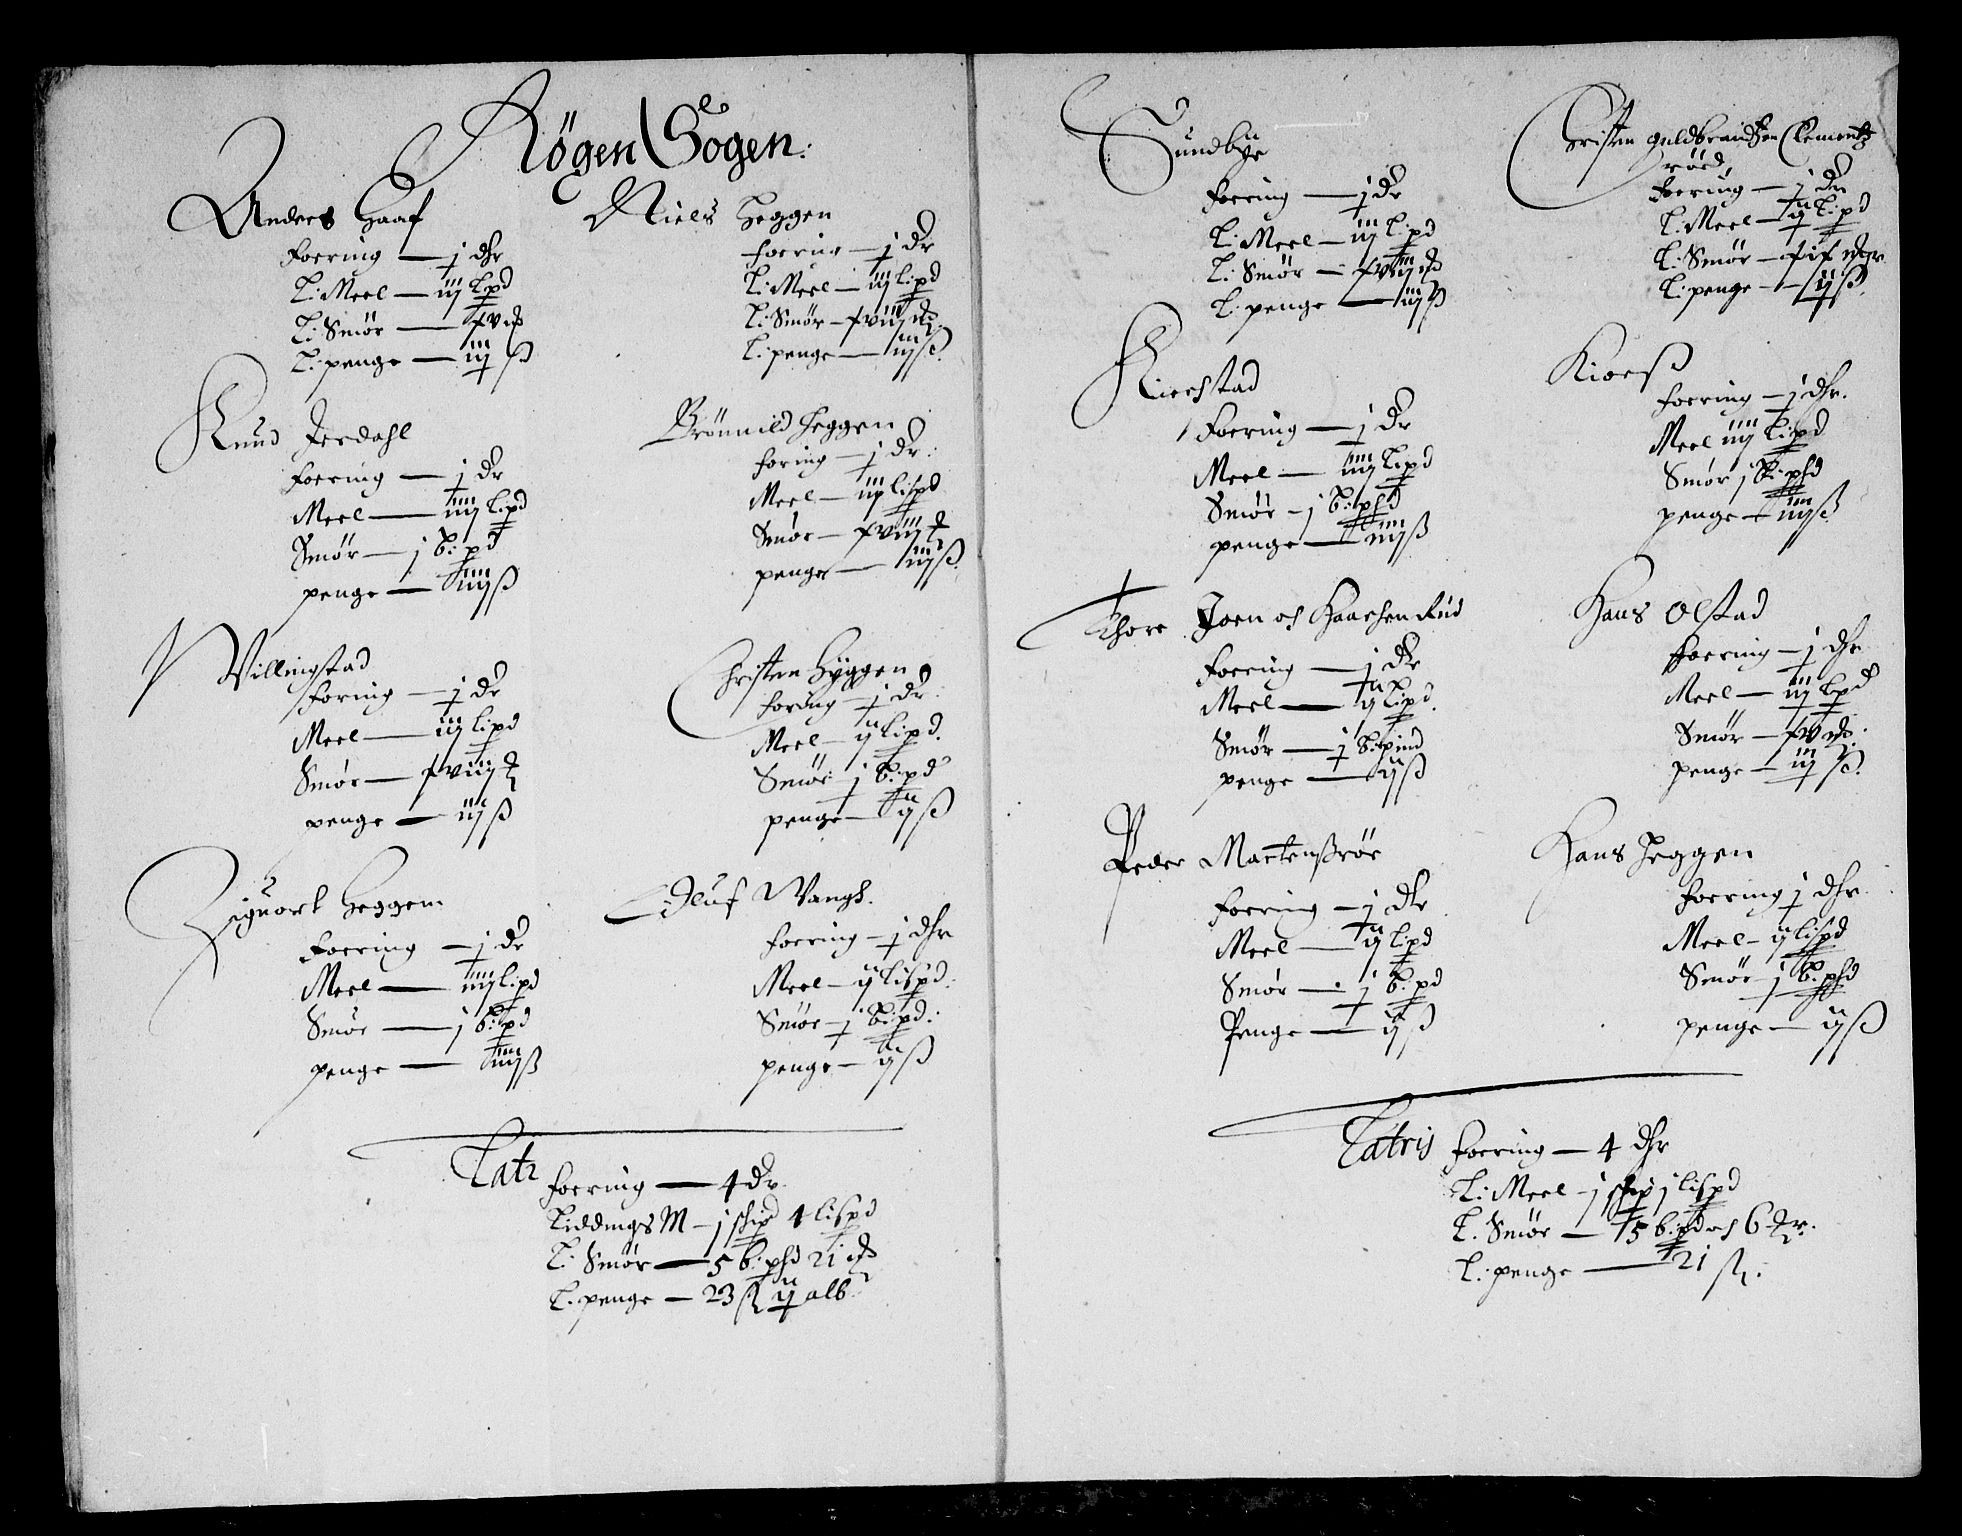 Røgen Sogen:
Anders Haaf
Foering — j dhr
L: Meel — iij Lpd
L: Smør — xv
L: penge — iij ß
Knud Jerdahl
Foering — j dr
Meel — iiij L:pd
Smør — j B: pd
penge — iiij ß
Villingstad
Foring — j dr
Meel — iij lipd
Smør — xviij
penge — iij ß
Siguort Heggem
Foering — j dr
Meel — iiij lipd
Smør — j B:pd
penge — iiij ß
Niels Heggen
Foering — j dr
L: Meel — iij li:pd
L: Smør — xviij
L: penge — iij ß
Brønnild Heggen
Foring — j dr:
Meel — iij lispd
Smør — xviij
penge — iij ß
Christen Hyggen
Foring — j dr:
Meel — ij lipd.
Smør: j B:pd
penge — ij ß
Oluf Wangh.
Foering — j dhr
Meel — ij Lispd.
Smør — j B:pd:
penge — ij ß
Latr Foering — 4 dr.
Liddings M — j skip 4 lispd
L: Smør — 5 b: phd 21
L. penge — 23 ß ij alb.
Sundbye
Foering — j dr
L: Meel — iij L:pd
L: Smør — xviij
L: penge — iij ß
Kierstad
Foering — j dr
Meel — iiij Lipd
Smør — j B:phd
penge — iiij ß
Thore Joen och Haachen Rud
Foering — j dr
Meel — ij Lipd.
Smør — j B:pund
penge — ij ß
Peder Martenßrøe
Foering — j dlr
Meel — ij Lipd
Smør — j B: pd
Penge — ij ß
Christen guldbrandßen Clementz
røed
Foering — j dr
L: Meel — ij L:pd
L: Smør — xix
L: penge — ij ß
Kioeß
Foering — j dhr.
Meel iiij Li:pd
Smør j B:phd
penge — iiij ß
Hans Olstad
Foering — j dhr
Meel — iij Lpd
Smør — xv
penge — iij ß.
Hans Heggen
Foering j dhr
Meel — ij lispd
Smør j B:phd
penge — ij ß
Latris Foering — 4 dhr
L: Meel — j skip j lispd
L. Smør — 5 b:pd och 6
L: penge — 21 ß.